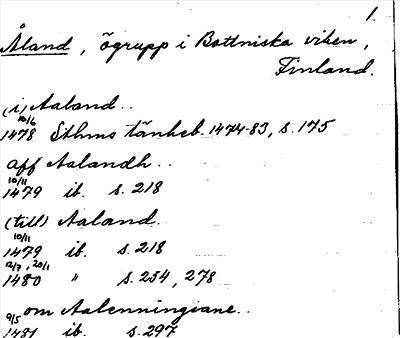 1.
Åland, ögrupp i Bottniska viken,
Finland.
(i) Aaland..
10/6
1478 Sthms tänkeb. 1474-83, s. 175
aff Aalandh..
10/11
1479 ib. s. 218
(till) Aaland.
10/11
1479 ib. s. 218
12/7, 20/1
1480 " s. 254, 278
om Aalenningiane..
9/5
1481 ib. s. 297